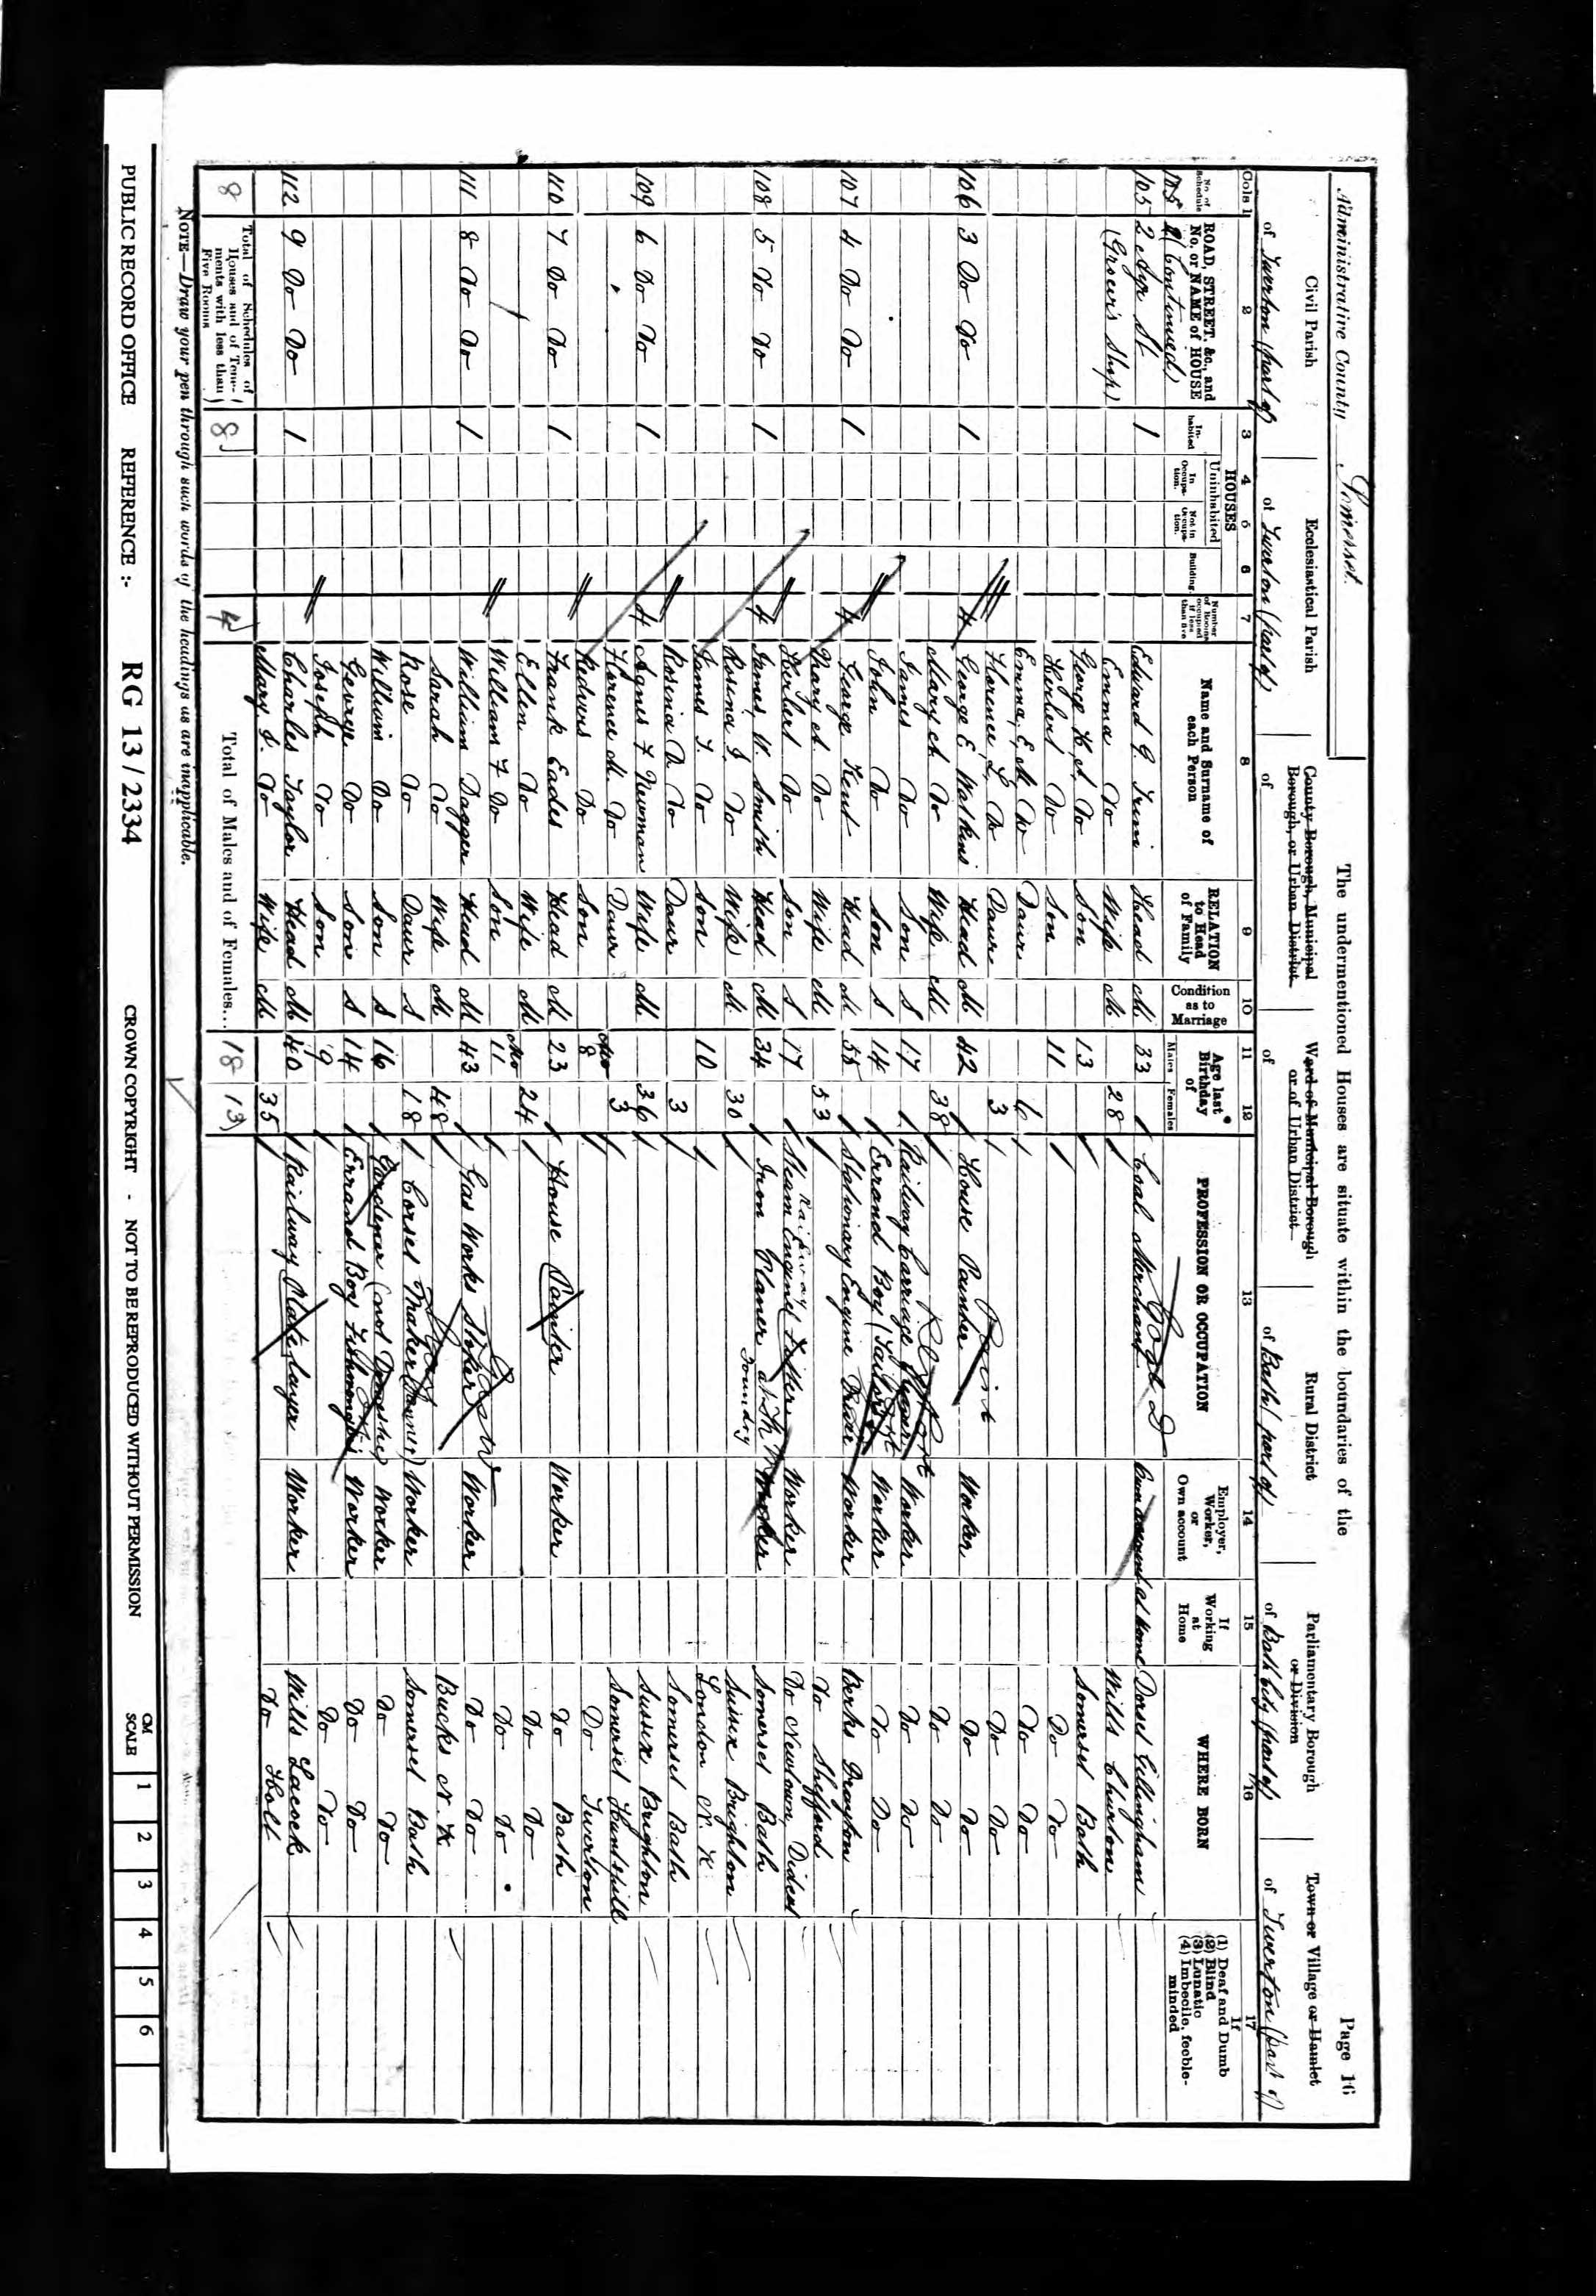 Administrative County Somerset.
The undermentioned Houses are situate within the boundaries of the
Page 16
Civil Parish
of Twerton (part of)
Ecclesiastical Parish
of Twerton (part of)
County Borough, Municipal Borough, or Urban District
of
Ward of Municipal Borough or of Urban District
of
Rural District
of Bath (part of)
Parliamentary Borough or Division
of Bath City (part of)
Town or Village or Hamlet
of Twerton (part of)
Cols 1 2 3 4 5 6 7 8 9 10 11 12 13 14 15 16 17
No. of Schedule
ROAD, STREET, &c., and No. or NAME of HOUSE
HOUSES
Inhabited
Uninhabited
In Occupation.
Not in Occupation.
Building
Number of Rooms occupied if less than five
Name and Surname of each Person
RELATION to Head of Family
Condition as to Marriage
Age last Birthday of
Males
Females
PROFESSION OR OCCUPATION
Employer, Worker, or Own account
If Working at Home
WHERE BORN
If
(1) Deaf and Dumb
(2) Blind
(3) Lunatic
(4) Imbecile, feeble-minded
105 (Continued)
105 2 Ayr St 1 Edward G. Trim Head M 33 Coal Merchant Own account At Home Dorset Gillingham
(Grocer's Shop) Emma Do Wife M 28 Wilts
George H. A. Do Son 13 Somerset Bath
Herbert Do Son 11 Do Do
Emma E. M. Do Daur 6 Do Do
Florence L. Do Daur 3 Do Do
106 3 Do Do 1 4 George E. Watkins Head M 42 House Painter Worker Do Do
Mary A Do Wife M 38 Do Do
James Do Son S 17 Railway Carriage Worker Do Do
John Do Son S 14 Errand Boy (Tailors) Worker Do Do
107 4 Do Do 1 4 George Kent Head M Stationary Engine Driver Worker Berks Drayton
Mary A. Do Wife M 53 Do Shefford
Herbert Do Son S 17 Railway Steam Engine Fitter Worker Do Newtown, Didcot
108 5 Do Do 1 4 James W. Smith Head M 34 Iron Planer at Foundry Worker Somerset Bath
Rosina J. Do Wife M 30 Sussex Brighton
James T. Do Son 10 London N. K
Rosina Do Daur 3 Somerset Bath
109 6 Do Do 1 4 Agnes F Newman Wife M 36 Sussex Brighton
Florence M. Do Daur 3 Somerset
Do Son 8 mo Do Twerton
110 7 Do Do 1 Frank Eades Head M 23 House Painter Worker Do Bath
Ellen Do Wife M 24 Do Do
William F Do Son 11 mo Do Do
111 8 Do Do 1 William Dagger Head M 43 Gas Works Stoker Worker Do Do
Sarah Do Wife M 48 Bucks N. K
Rose Do Daur S 18 Corset Maker Worker Somerset Bath
William Do Son S 16 Gardener (not Domestic) Worker Do Do
George Do Son S 14 Errand Boy Worker Do Do
Joseph Do Son 9 Do Do
112 9 Do Do 1 Charles Taylor Head M 40 Railway Plate layer Worker Wilts Lacock
Mary J. Do Wife M 35 Do Holt
8 Total of Schedules of Houses and of Tenements with less than Five Rooms 8 4
Total of Males and of Females... 18 13
NOTE—Draw your pen through such words of the headings as are inapplicable.
PUBLIC RECORD OFFICE REFERENCE :- RG 13 / 2334 CROWN COPYRIGHT - NOT TO BE REPRODUCED WITHOUT PERMISSION
CM SCALE 1 2 3 4 5 6